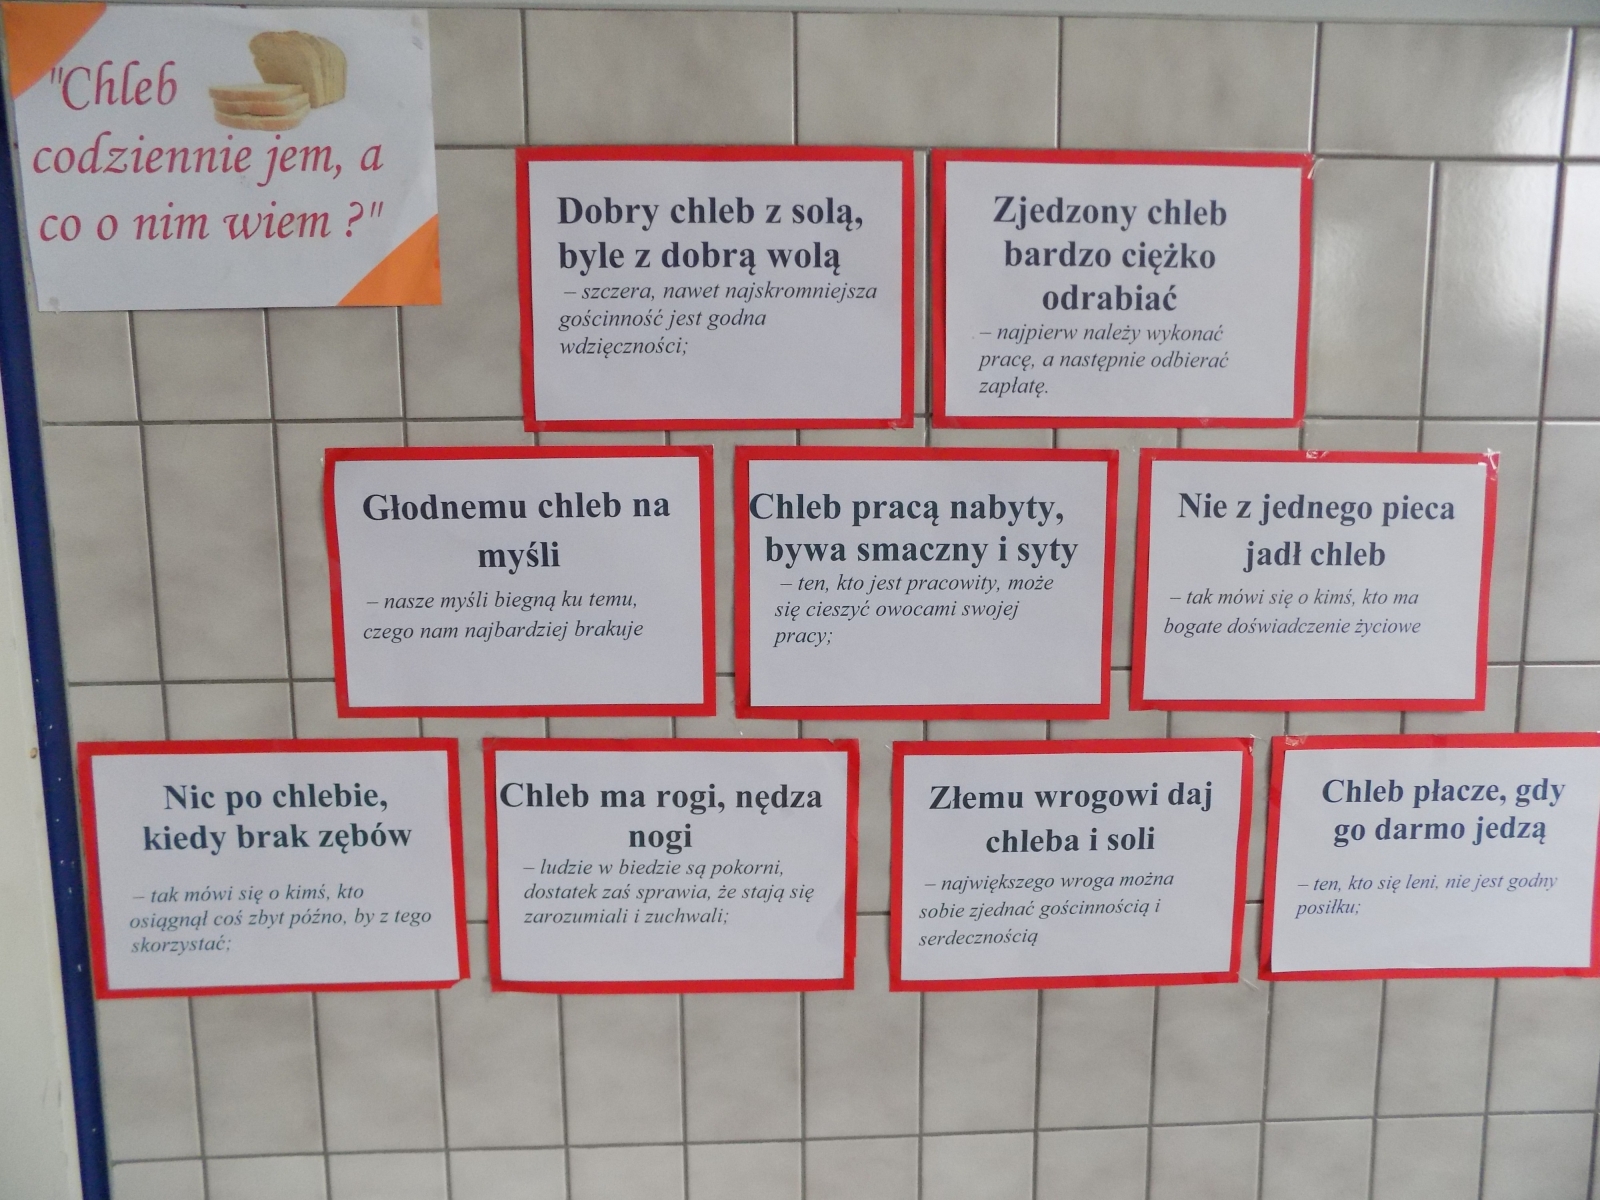 "Chleb
codziennie jem, a
co o nim wiem ?"
Dobry chleb z solą,
byle z dobrą wolą
– szczera, nawet najskromniejsza
gościnność jest godna
wdzięczności;
Zjedzony chleb
bardzo ciężko
odrabiać
– najpierw należy wykonać
pracę, a następnie odbierać
zapłatę.
Głodnemu chleb na
myśli
– nasze myśli biegną ku temu,
czego nam najbardziej brakuje
Chleb pracą nabyty,
bywa smaczny i syty
– ten, kto jest pracowity, może
się cieszyć owocami swojej
pracy;
Nie z jednego pieca
jadł chleb
– tak mówi się o kimś, kto ma
bogate doświadczenie życiowe
Nic po chlebie,
kiedy brak zębów
– tak mówi się o kimś, kto
osiągnął coś zbyt późno, by z tego
skorzystać;
Chleb ma rogi, nędza
nogi
– ludzie w biedzie są pokorni,
dostatek zaś sprawia, że stają się
zarozumiali i zuchwali;
Złemu wrogowi daj
chleba i soli
– największego wroga można
sobie zjednać gościnnością i
serdecznością
Chleb płacze, gdy
go darmo jedzą
– ten, kto się leni, nie jest godny
posiłku;